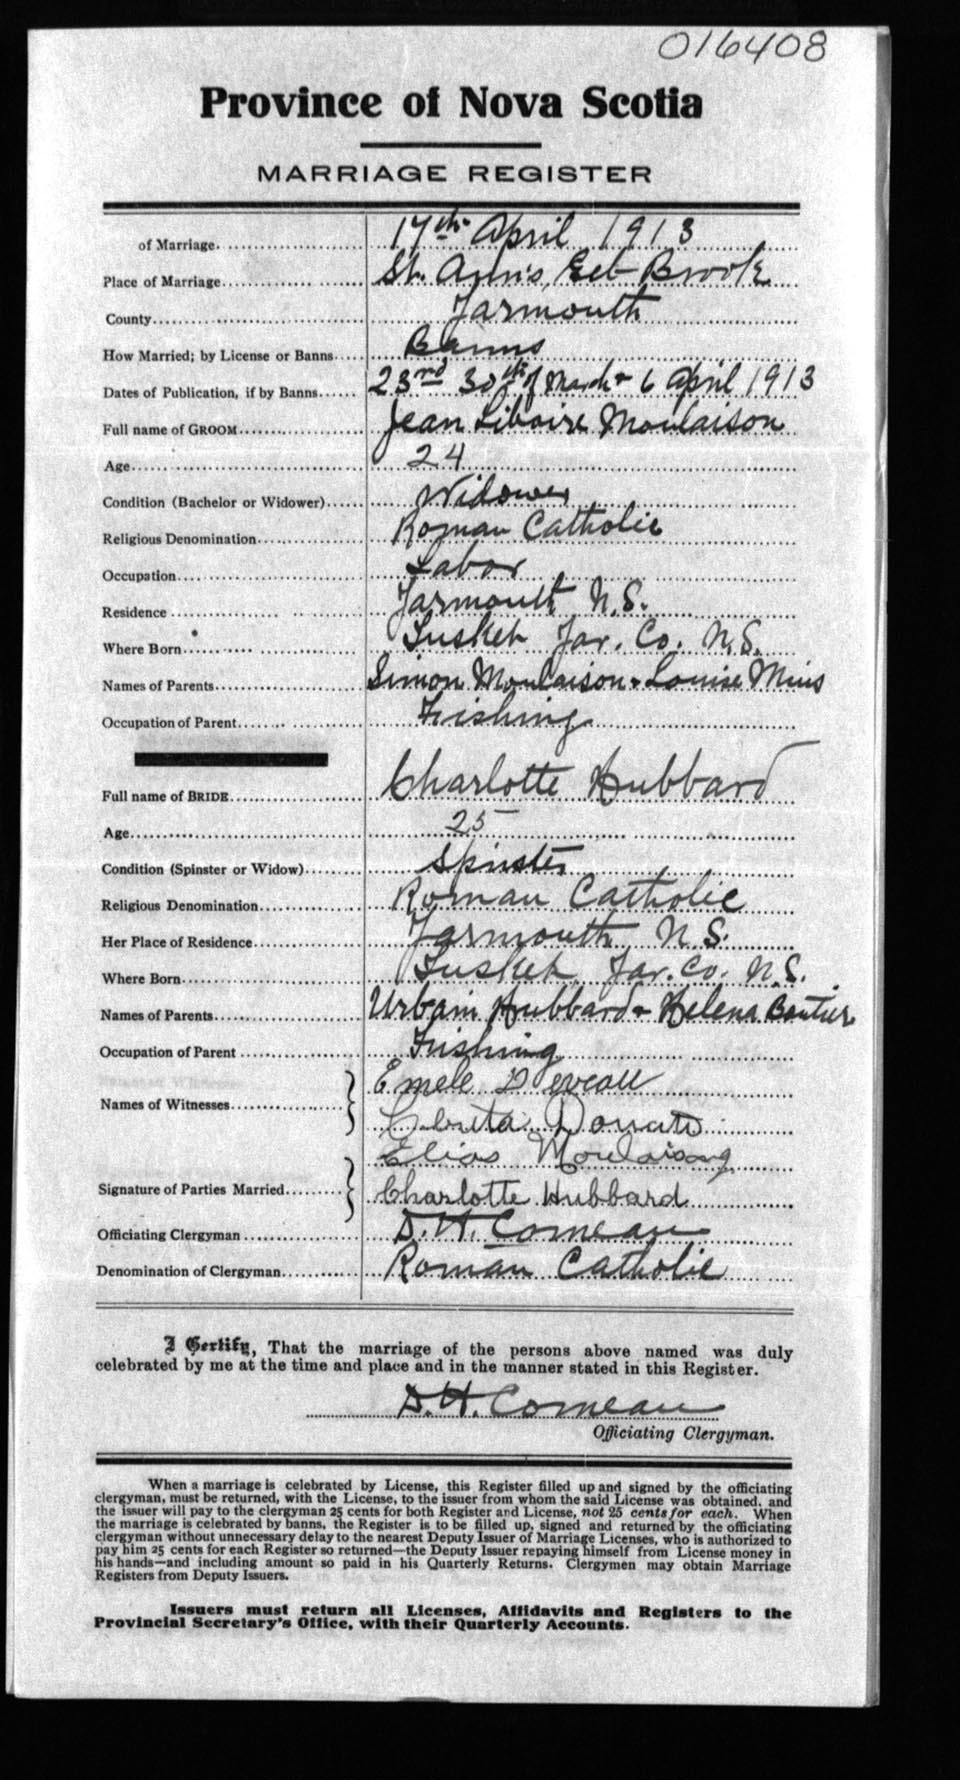 016408
Province of Nova Scotia
MARRIAGE REGISTER
of Marriage 17th April 1913
Place of Marriage St. Ann's, Eel Brook
County Yarmouth
How Married; by License or Banns Banns
Dates of Publication, if by Banns 23rd 30th of March & 6 April 1913
Full name of GROOM Jean Liboire Moulaison
Age 24
Condition (Bachelor or Widower) Widower
Religious Denomination Roman Catholic
Occupation Labor
Residence Yarmouth N.S.
Where Born Tusket Yar. Co. N.S.
Names of Parents Simon Moulaison & Louise Mius
Occupation of Parent Fishing
Full name of BRIDE Charlotte Hubbard
Age 25
Condition (Spinster or Widow) Spinster
Religious Denomination Roman Catholic
Her Place of Residence Yarmouth N.S.
Where Born Tusket Yar. Co. N.S.
Names of Parents Urbain Hubbard & Helena
Occupation of Parent Fishing
Names of Witnesses
Elias Moulaison
Signature of Parties Married Charlotte Hubbard
Officiating Clergyman D.H. Comeau
Denomination of Clergyman Roman Catholic
I Certify, That the marriage of the persons above named was duly
celebrated by me at the time and place and in the manner stated in this Register.
D.H. Comeau
Officiating Clergyman.
When a marriage is celebrated by License, this Register filled up and signed by the officiating
clergyman, must be returned, with the License, to the issuer from whom the said License was obtained, and
the issuer will pay to the clergyman 25 cents for both Register and License, not 25 cents for each. When
the marriage is celebrated by banns, the Register is to be filled up, signed and returned by the officiating
clergyman without unnecessary delay to the nearest Deputy Issuer of Marriage Licenses, who is authorized to
pay him 25 cents for each Register so returned—the Deputy Issuer repaying himself from License money in
his hands—and including amount so paid in his Quarterly Returns. Clergymen may obtain Marriage
Registers from Deputy Issuers.
Issuers must return all Licenses, Affidavits and Registers to the
Provincial Secretary's Office, with their Quarterly Accounts.